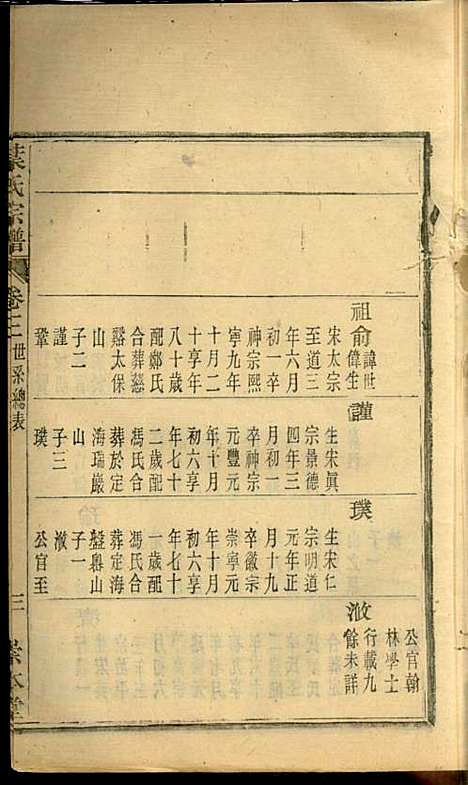 祖俞
諱世
偉生
宋太宗
至道三
年六月
初一卒
神宗熙
寧九年
十月二
十享年
八十歲
配鄭氏
合葬慈
谿太保
山
子二
謹
鞏
謹
生宋眞
宗景德
四年三
月初一
卒神宗
元豐元
年十月
初六享
年七十
二歲配
馮氏合
葬於定
海瑞巖
山
子三
璞
璞
生宋仁
宗明道
元年正
月十九
卒徽宗
崇寧元
年十月
初六享
年七十
一歲配
馮氏合
葬定海
盤嶴山
子一
公官至
公官翰
林學士
行載九
餘未詳
葉氏宗譜
卷二
世系總表
三
崇本堂